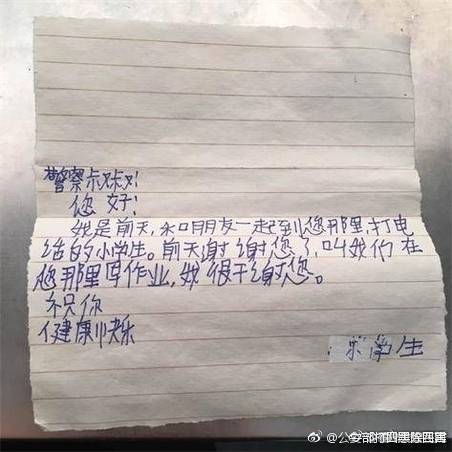 警察叔叔!
您好!
我是前天,和朋友一起到您那里,打电
话的小学生。前天谢谢您了,叫我们在
您那里写作业,我很干谢您。
祝你
健康快乐
学生
@公安部打四黑除四害